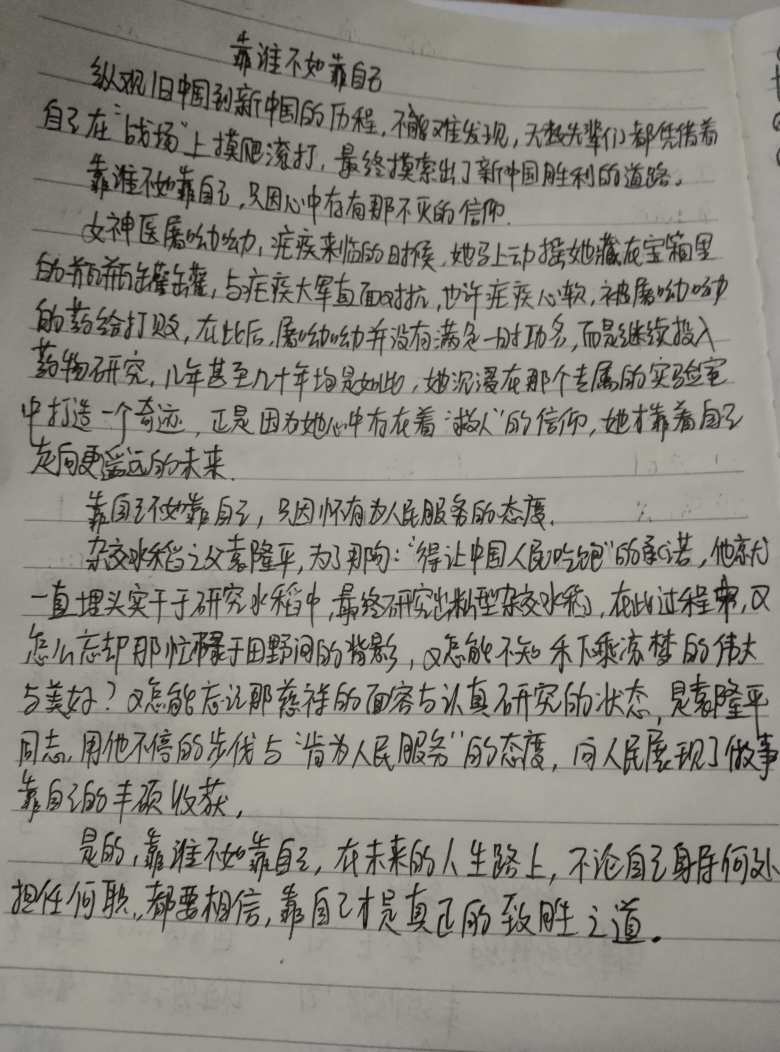 靠谁不如靠自己
纵观旧中国到新中国的历程,不能难发现,无数先辈们都凭借着
自己在"战场"上摸爬滚打,最终摸索出了新中国胜利的道路。
靠谁不如靠自己,只因心中存有那不灭的信仰.
女神医屠呦呦,疟疾来临的时候,她马上动摇她藏在宝箱里
的瓶瓶罐罐,与疟疾大军直面对抗,也许疟疾心软,被屠呦呦
的药给打败,在此后,屠呦呦并没有满足一时功名,而是继续投入
药物研究,几年甚至几十年均是如此,她沉浸在那个专属的实验室
中打造一个奇迹,正是因为她心中存在着"救人"的信仰,她才靠着自己
走向更遥远的未来.
靠自己不如靠自己,只因怀有为人民服务的态度.
杂交水稻之父袁隆平,为了那句:"得让中国人民吃饱"的承诺,他
一直埋头实干于研究水稻中,最终研究出籼型杂交水稻,在此过程中,又
怎么忘却那忙碌于田野间的背影,又怎能不知禾下乘凉梦的伟大
与美好?又怎能忘记那慈祥的面容与认真研究的状态,是袁隆平
同志,用他不停的步伐与"肯为人民服务"的态度,向人民展现了做事
靠自己的丰硕收获,
是的,靠谁不如靠自己,在未来的人生路上,不论自己身居何处
担任何职,都要相信,靠自己才是真正的致胜之道。